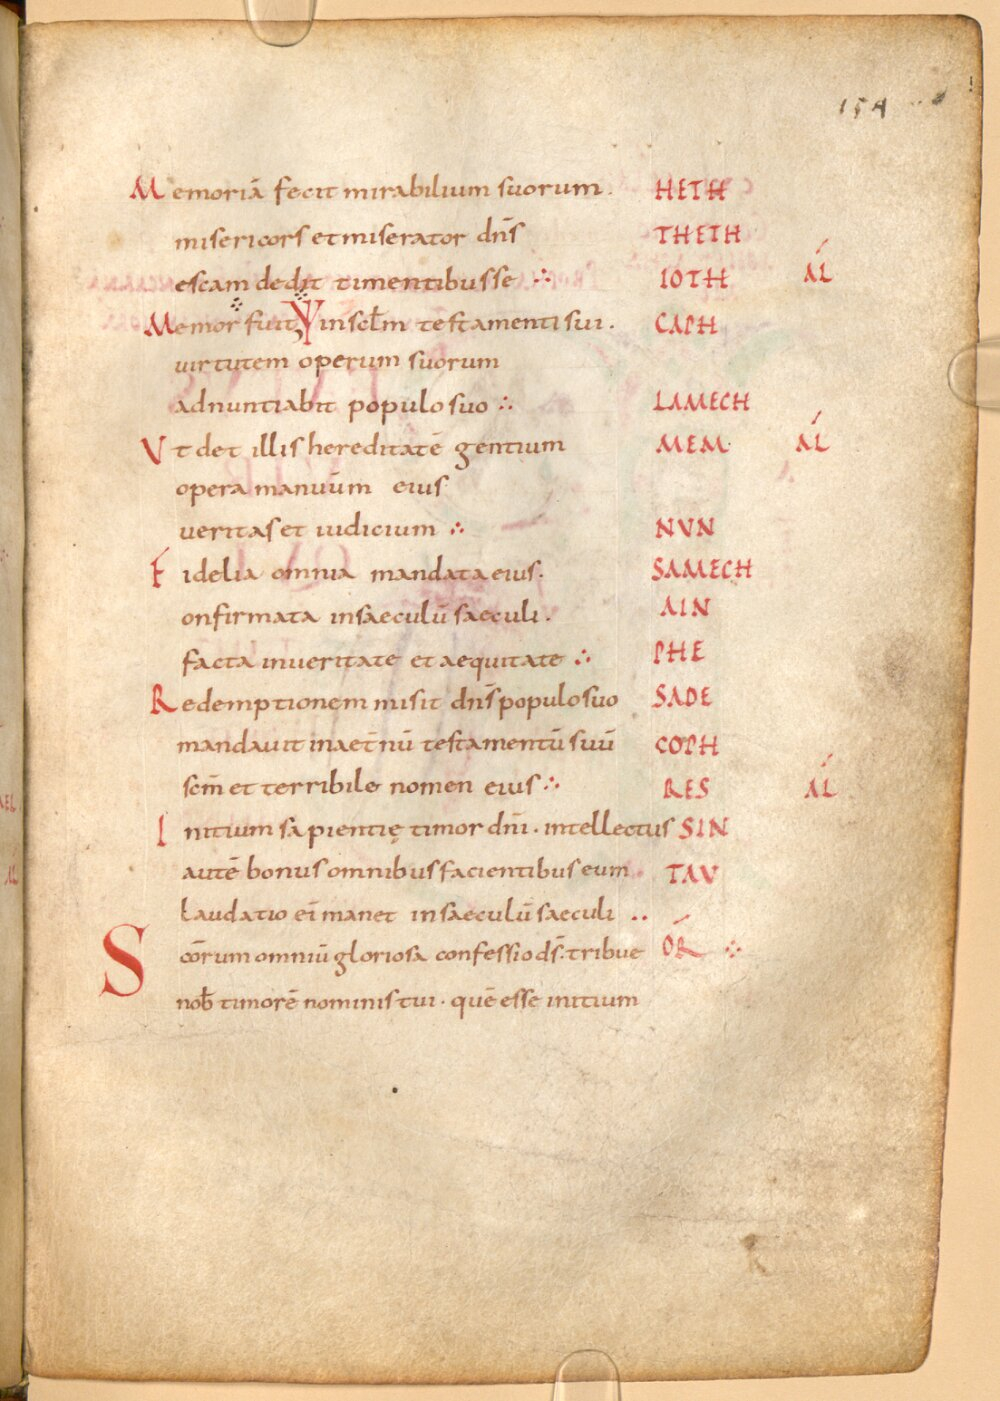 154
Memoriā fecit mirabilium suorum. HETH
misericors et miserator dn̄s THETH
escam dedit timentibus se ∴ IOTH ÁL
Memor fuit in sclm̄ testamenti sui. CAPH
virtutem operum suorum
adnuntiabit populo suo ∴ LAMECH
Vt det illis hereditatē gentium MEM ÁL
opera manuūm eius
veritas et iudicium ∴ NVN
Fidelia omnia mandata eius. SAMECH
onfirmata in saeculū saeculi. AIN
facta in veritate et aequitate ∴ PHE
Redemptionem misit dn̄s populo suo SADE
mandavit in aet̄nū testamentū suū COPH
scm̄ et terribile nomen eius ∴ RES ÁL
Initium sapientię timor dn̄i. intellectus SIN
autē bonus omnibus facientibus eum. TAV
Laudatio eī manet in saeculū saeculi ..
Scōrum omniū gloriosa confessio ds̄. tribue ÓR ∴
nob̄ timorē nominis tui. quē esse initium